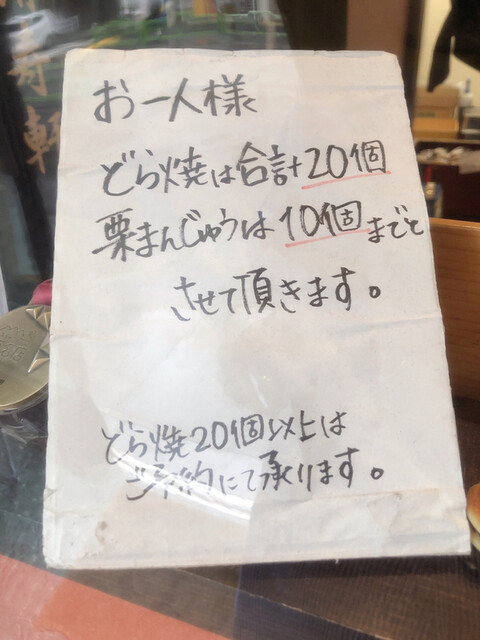 お一人様
どら焼は合計20個
栗まんじゅうは10個までと
させて頂きます。
どら焼20個以上は
ご予約にて承ります。
寿
軒